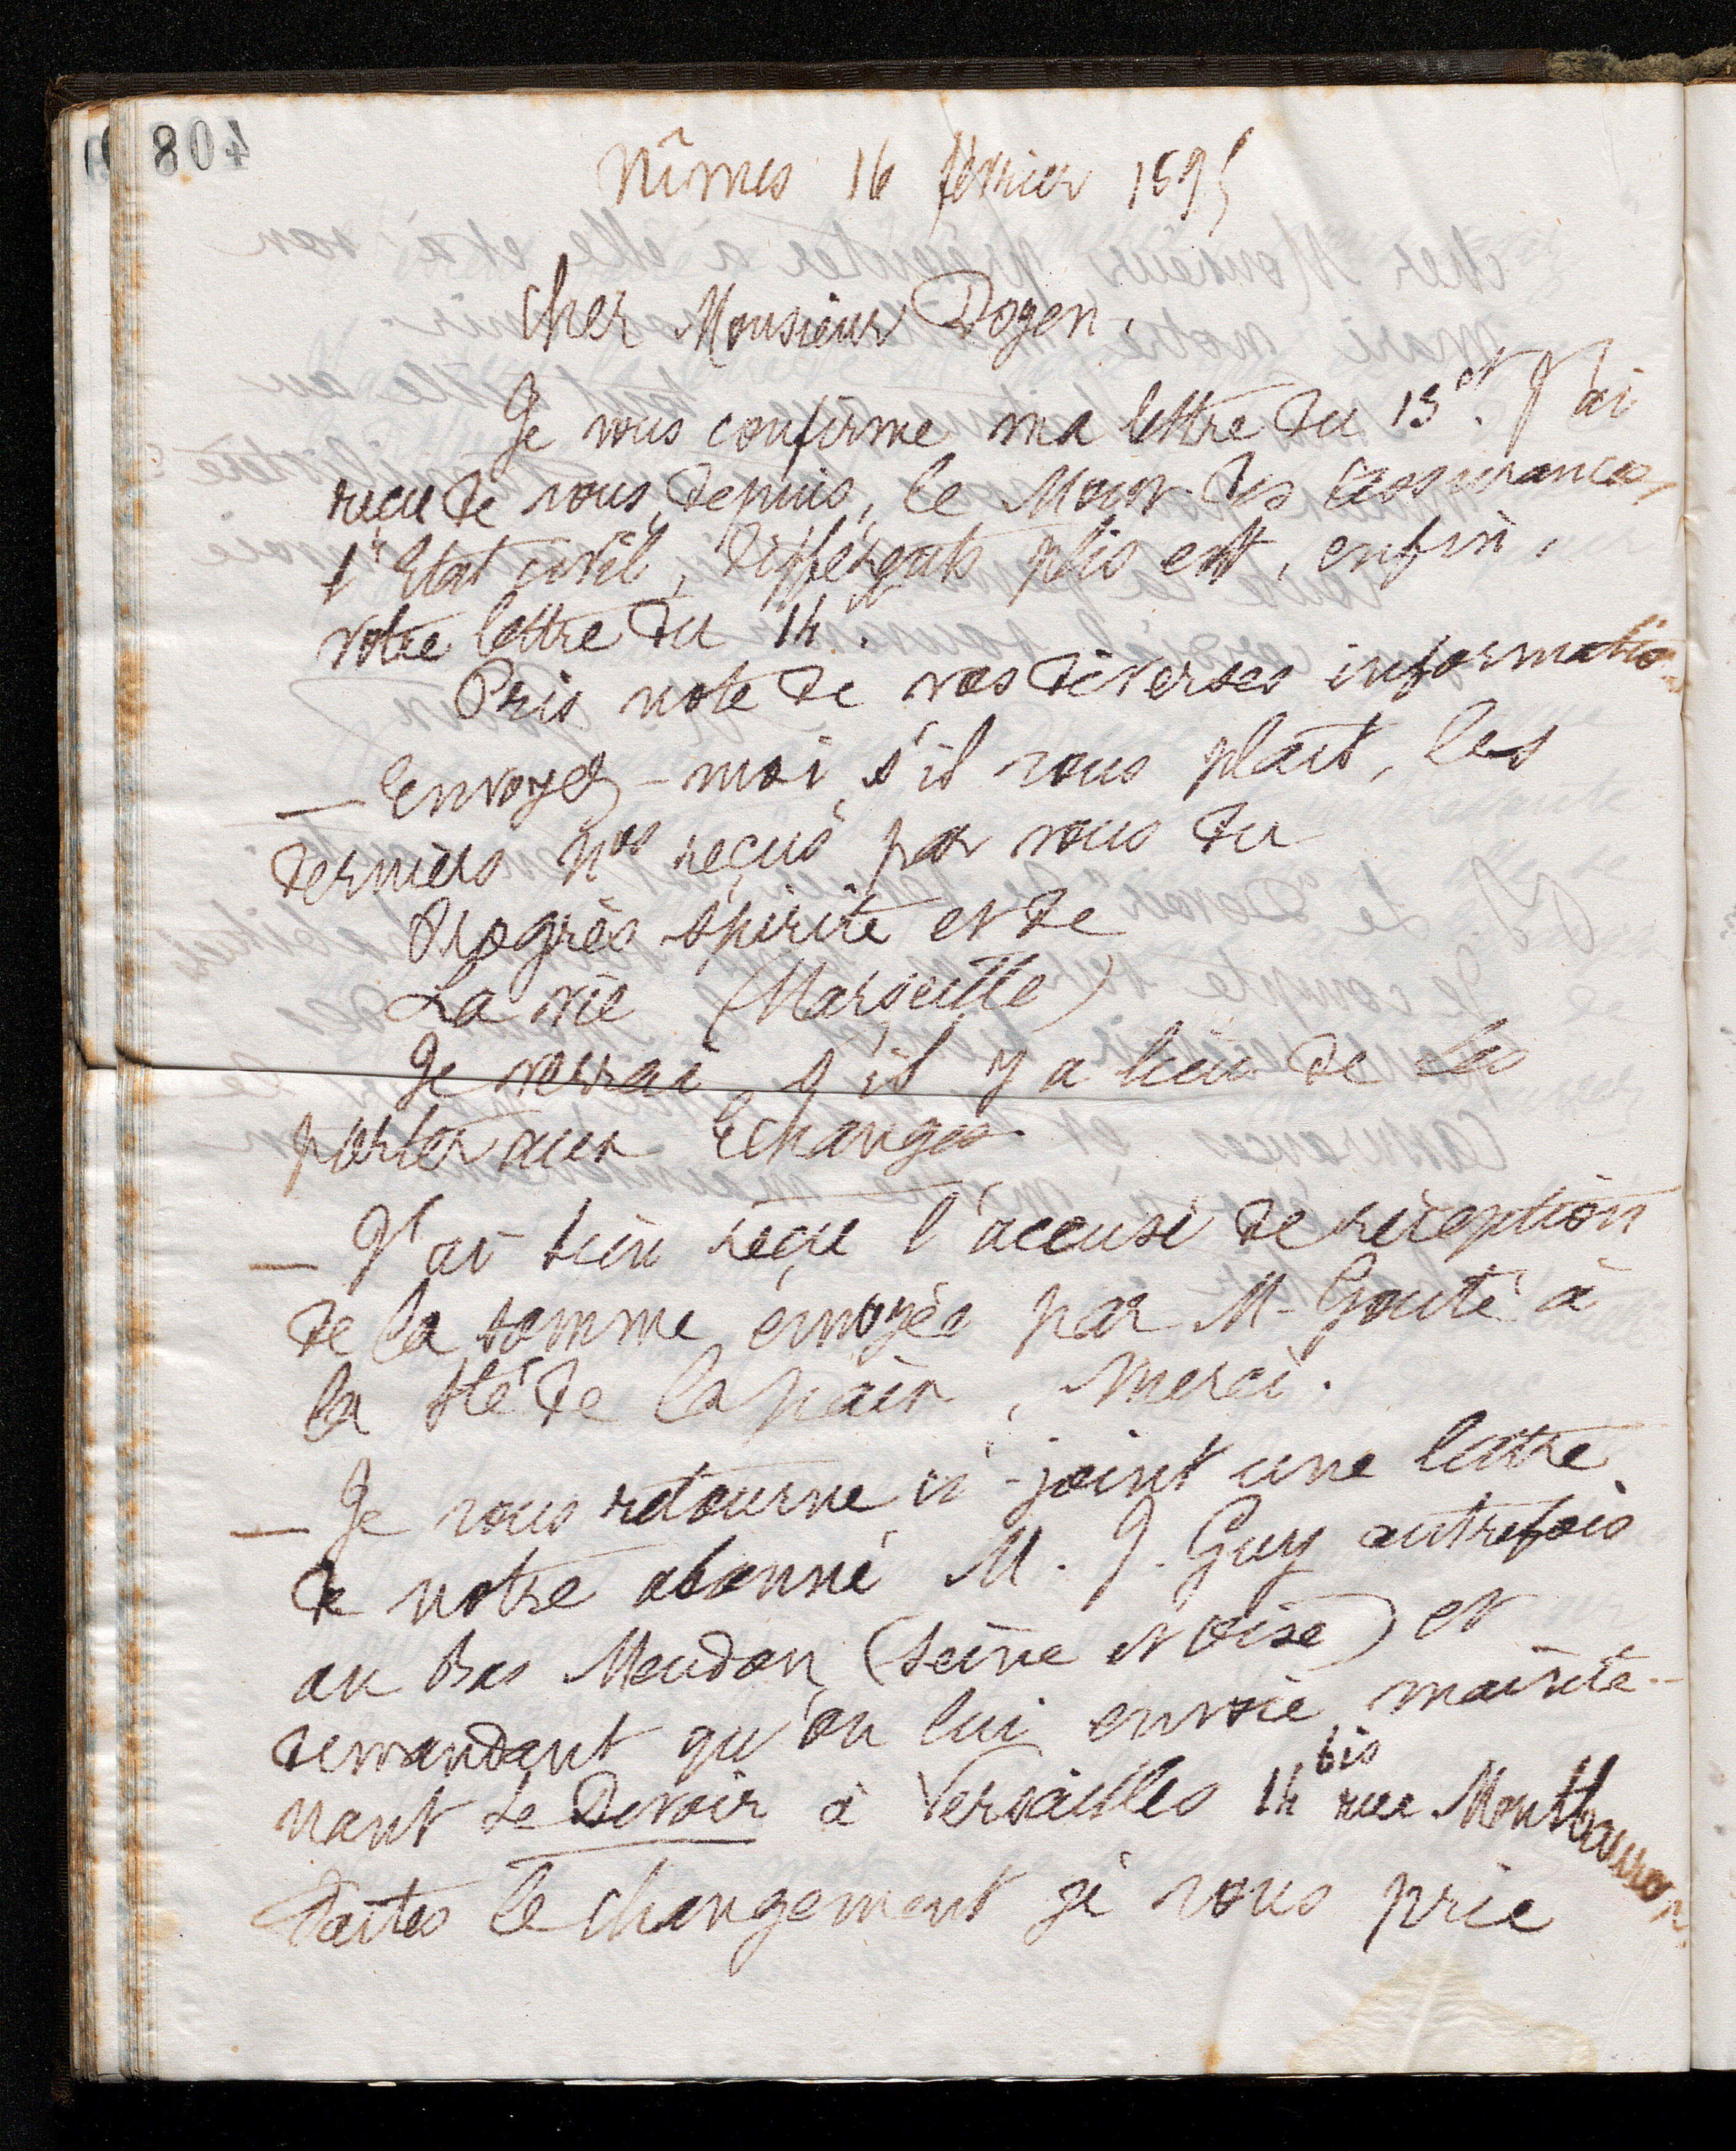 408
Nîmes 16 février 1895
Cher Monsieur Doyen,
Je vous confirme ma lettre du 13 ct. J'ai
reçu de vous, depuis, le Mour des assurances,
l'Etat civil, différents plis et, enfin,
votre lettre du 14.
Pris note de vos diverses informations
— Envoyez-moi, s'il vous plait, les
derniers nos reçus par vous du
Progrès spirite et de
La vie (Marseille)
Je verrai s'il y a lieu de les
porter aux Echanges
— J'ai bien reçu l'accusé de réception
de la somme envoyée par M. Gouté à
la Sté de la paix, merci.
— Je vous retourne ci-joint une lettre
de notre abonné M. J. Guy autrefois
au bas Meudon (Seine et Oise) et
demandant qu'on lui envoie mainte-
nant Le Devoir à Versailles 14 bis rue Montbauron
Faites le changement je vous prie